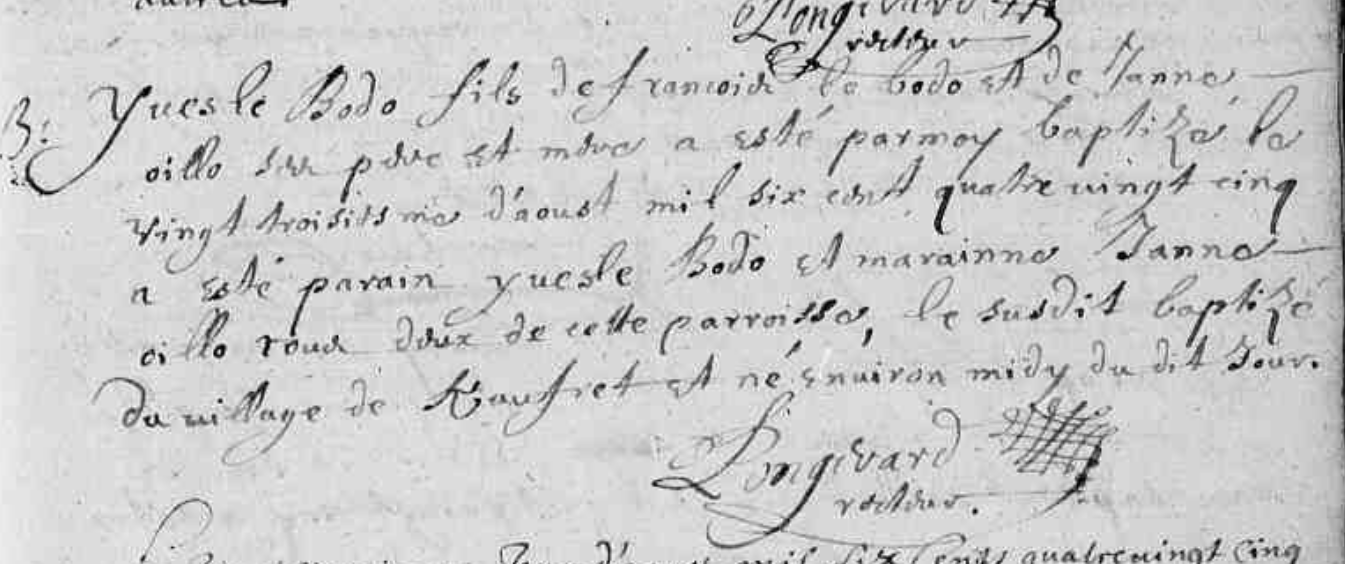 Longevard
recteur
3: Yves le Bodo fils de francois le bodo et de Janne
oillo ses pere et mere a esté par moy baptizé le
vingt troisiesme d'aoust mil six cent quatre vingt cinq
a esté parain yves le Bodo et marainne Janne
oillo tous deux de cette parroisse, le susdit baptizé
du village de Kaufret et né environ midy du dit Jour.
Longevard
recteur.
mil six cents quatrevingt cinq